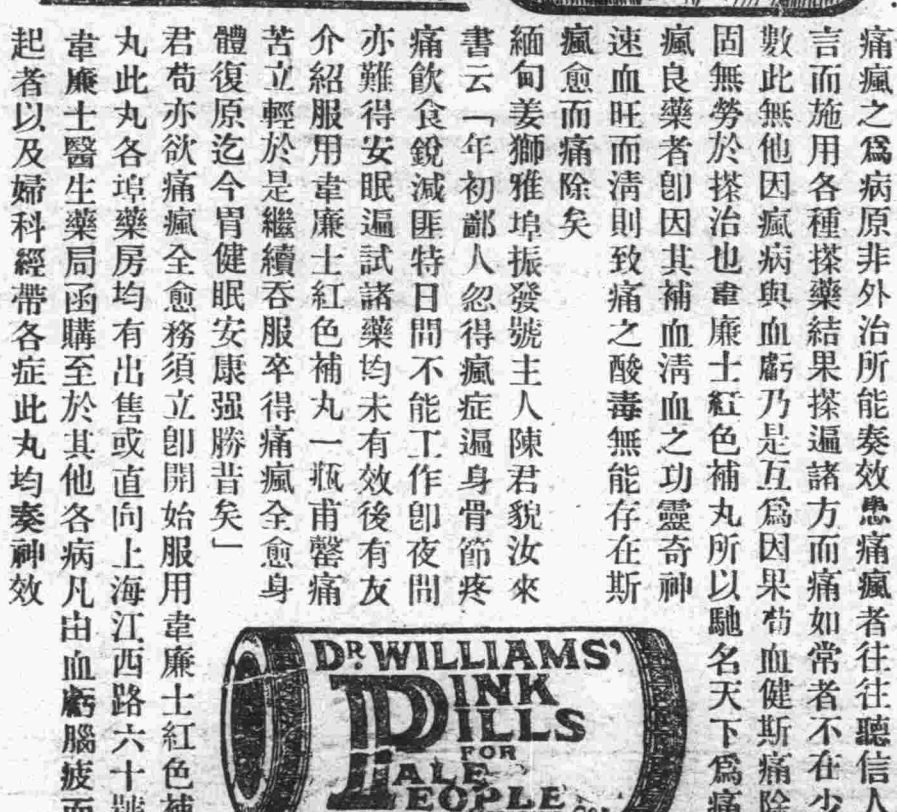 痛瘋之爲病原非外治所能奏效患痛瘋者往往聽信人
言而施用各種搽藥結果搽遍諸方而痛如常者不在少
數此無他因瘋病與血虧乃是互爲因果茍血健斯痛除
固無勞於搽治也韋廉士紅色補丸所以馳名天下爲痛
瘋良藥者卽因其補血淸血之功靈奇神
速血旺而淸則致痛之酸毒無能存在斯
瘋愈而痛除矣
緬甸姜獅雅埠振發號主人陳君貌汝來
書云「年初鄙人忽得瘋症遍身骨節疼
痛飲食銳減匪特日間不能工作卽夜間
亦難得安眠遍試諸藥均未有效後有友
介紹服用韋廉士紅色補丸一瓶甫罄痛
苦立輕於是繼續吞服卒得痛瘋全愈身
體復原迄今胃健眠安康强勝昔矣」
君茍亦欲痛瘋全愈務須立卽開始服用韋廉士紅色補
丸此丸各埠藥房均有出售或直向上海江西路六十號
韋廉士醫生藥局函購至於其他各病凡由血虧腦疲而
起者以及婦科經帶各症此丸均奏神效
DR. WILLIAMS'
PINK
PILLS
FOR
PALE
PEOPLE